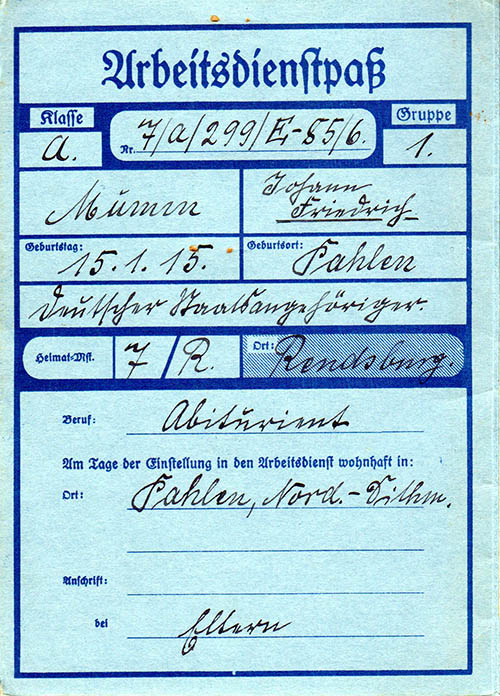 Arbeitsdienstpaß
Klasse
A.
Nr. 7/A/299/E-85/6.
Gruppe
1.
Mumm
Johann
Friedrich
Geburtstag:
15.1.15.
Geburtsort:
Pahlen
Deutscher Staatsangehöriger.
Heimat-Mst.
7/R.
Ort:
Rendsburg.
Beruf: Abiturient
Am Tage der Einstellung in den Arbeitsdienst wohnhaft in:
Ort: Pahlen, Nord.-Dithm.
Anschrift:
bei Eltern